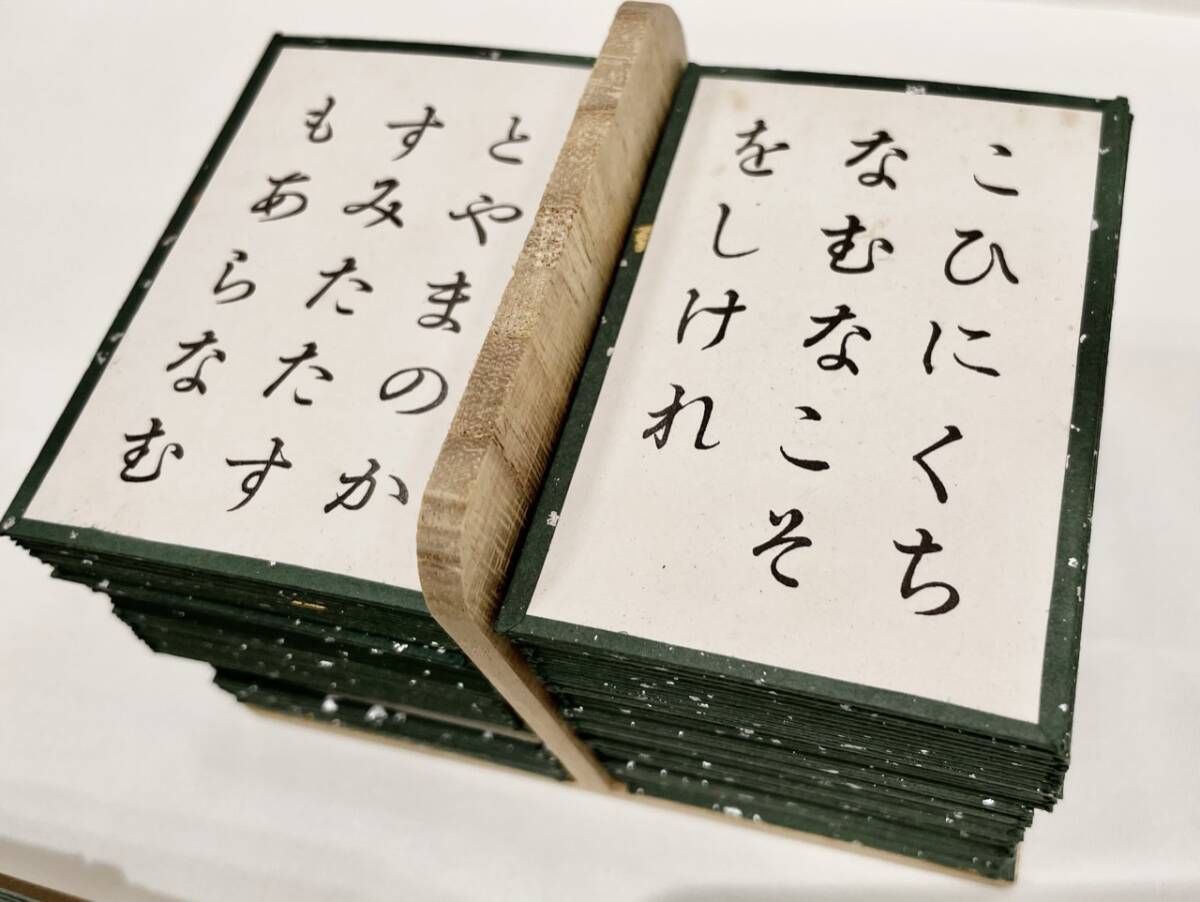 こひにくち
なむなこそ
をしけれ
とやまのか
すみたたす
もあらなむ